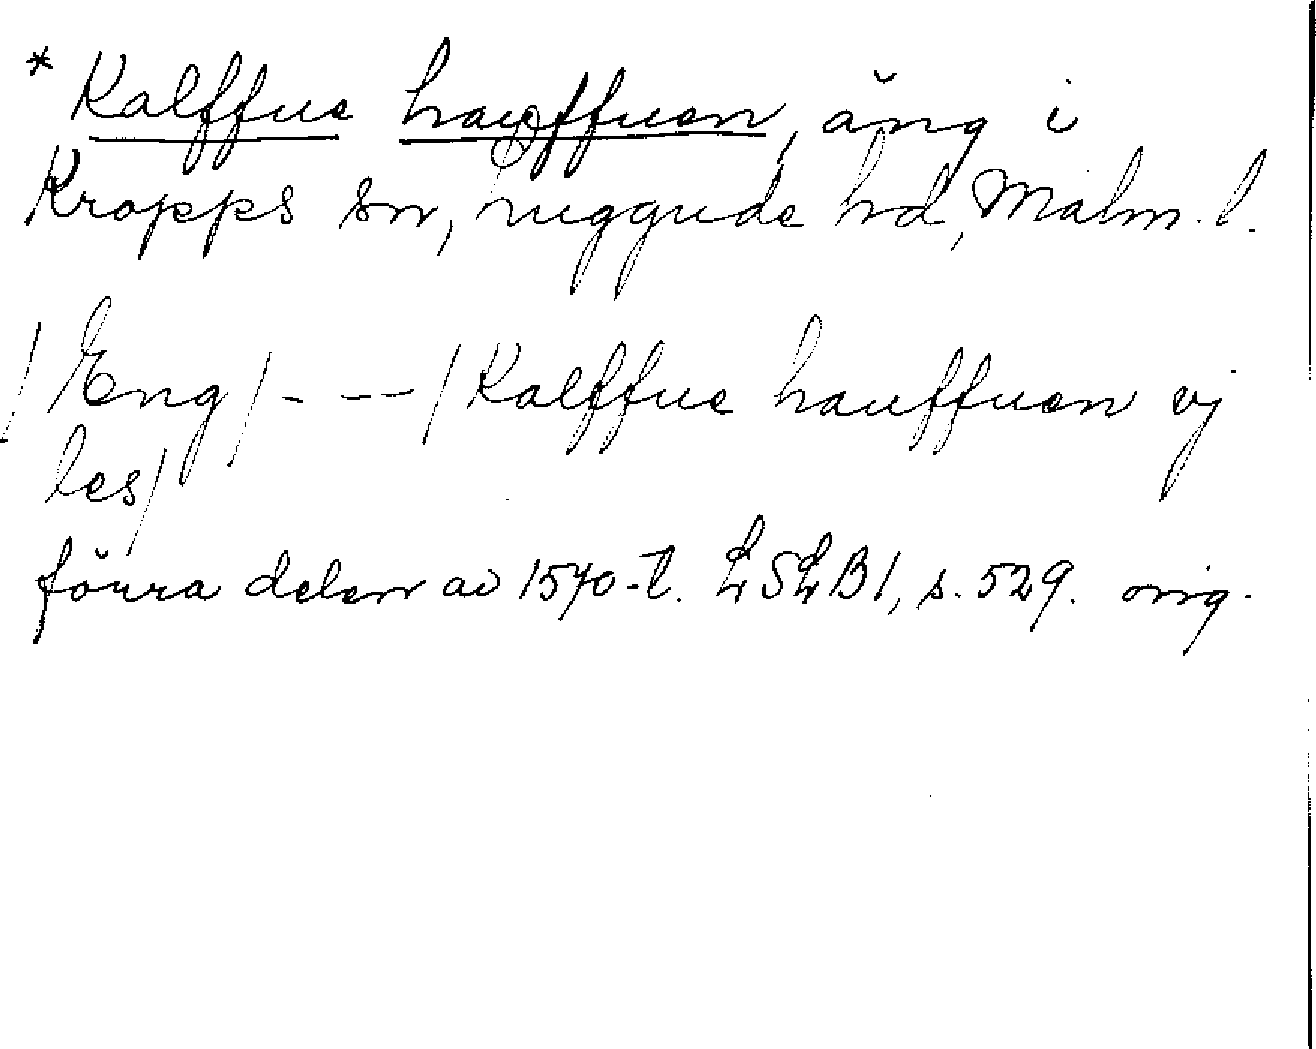 * Kalffue hauffuen, äng i
Kropps sn, Luggude hd, Malm. l.
/Eng/ - -- /Kalffue hauffuen ej
les/
förra delen av 1570-t. LSLB1, s. 529. orig.